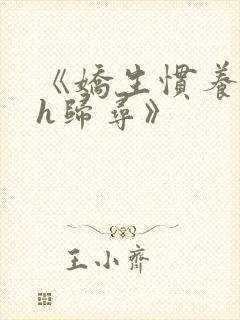 《嬌生慣養
h歸尋》
王小齊